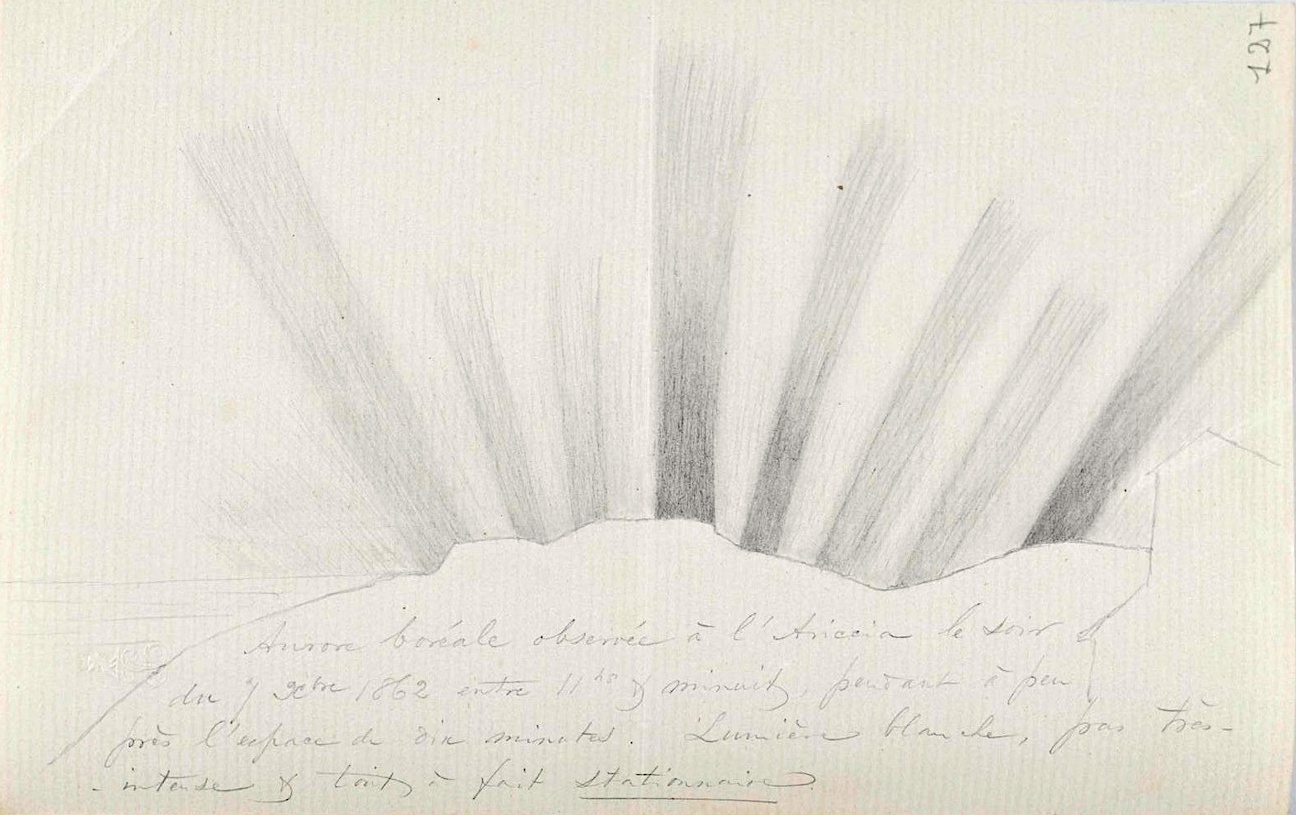 127
Aurore boréale observée à l'Ariccia le soir
du 7 9bre 1862 entre 11 hrs & minuit, pendant à peu
près l'espace de dix minutes. Lumière blanche, pas très-
-intense & tout à fait stationnaire.